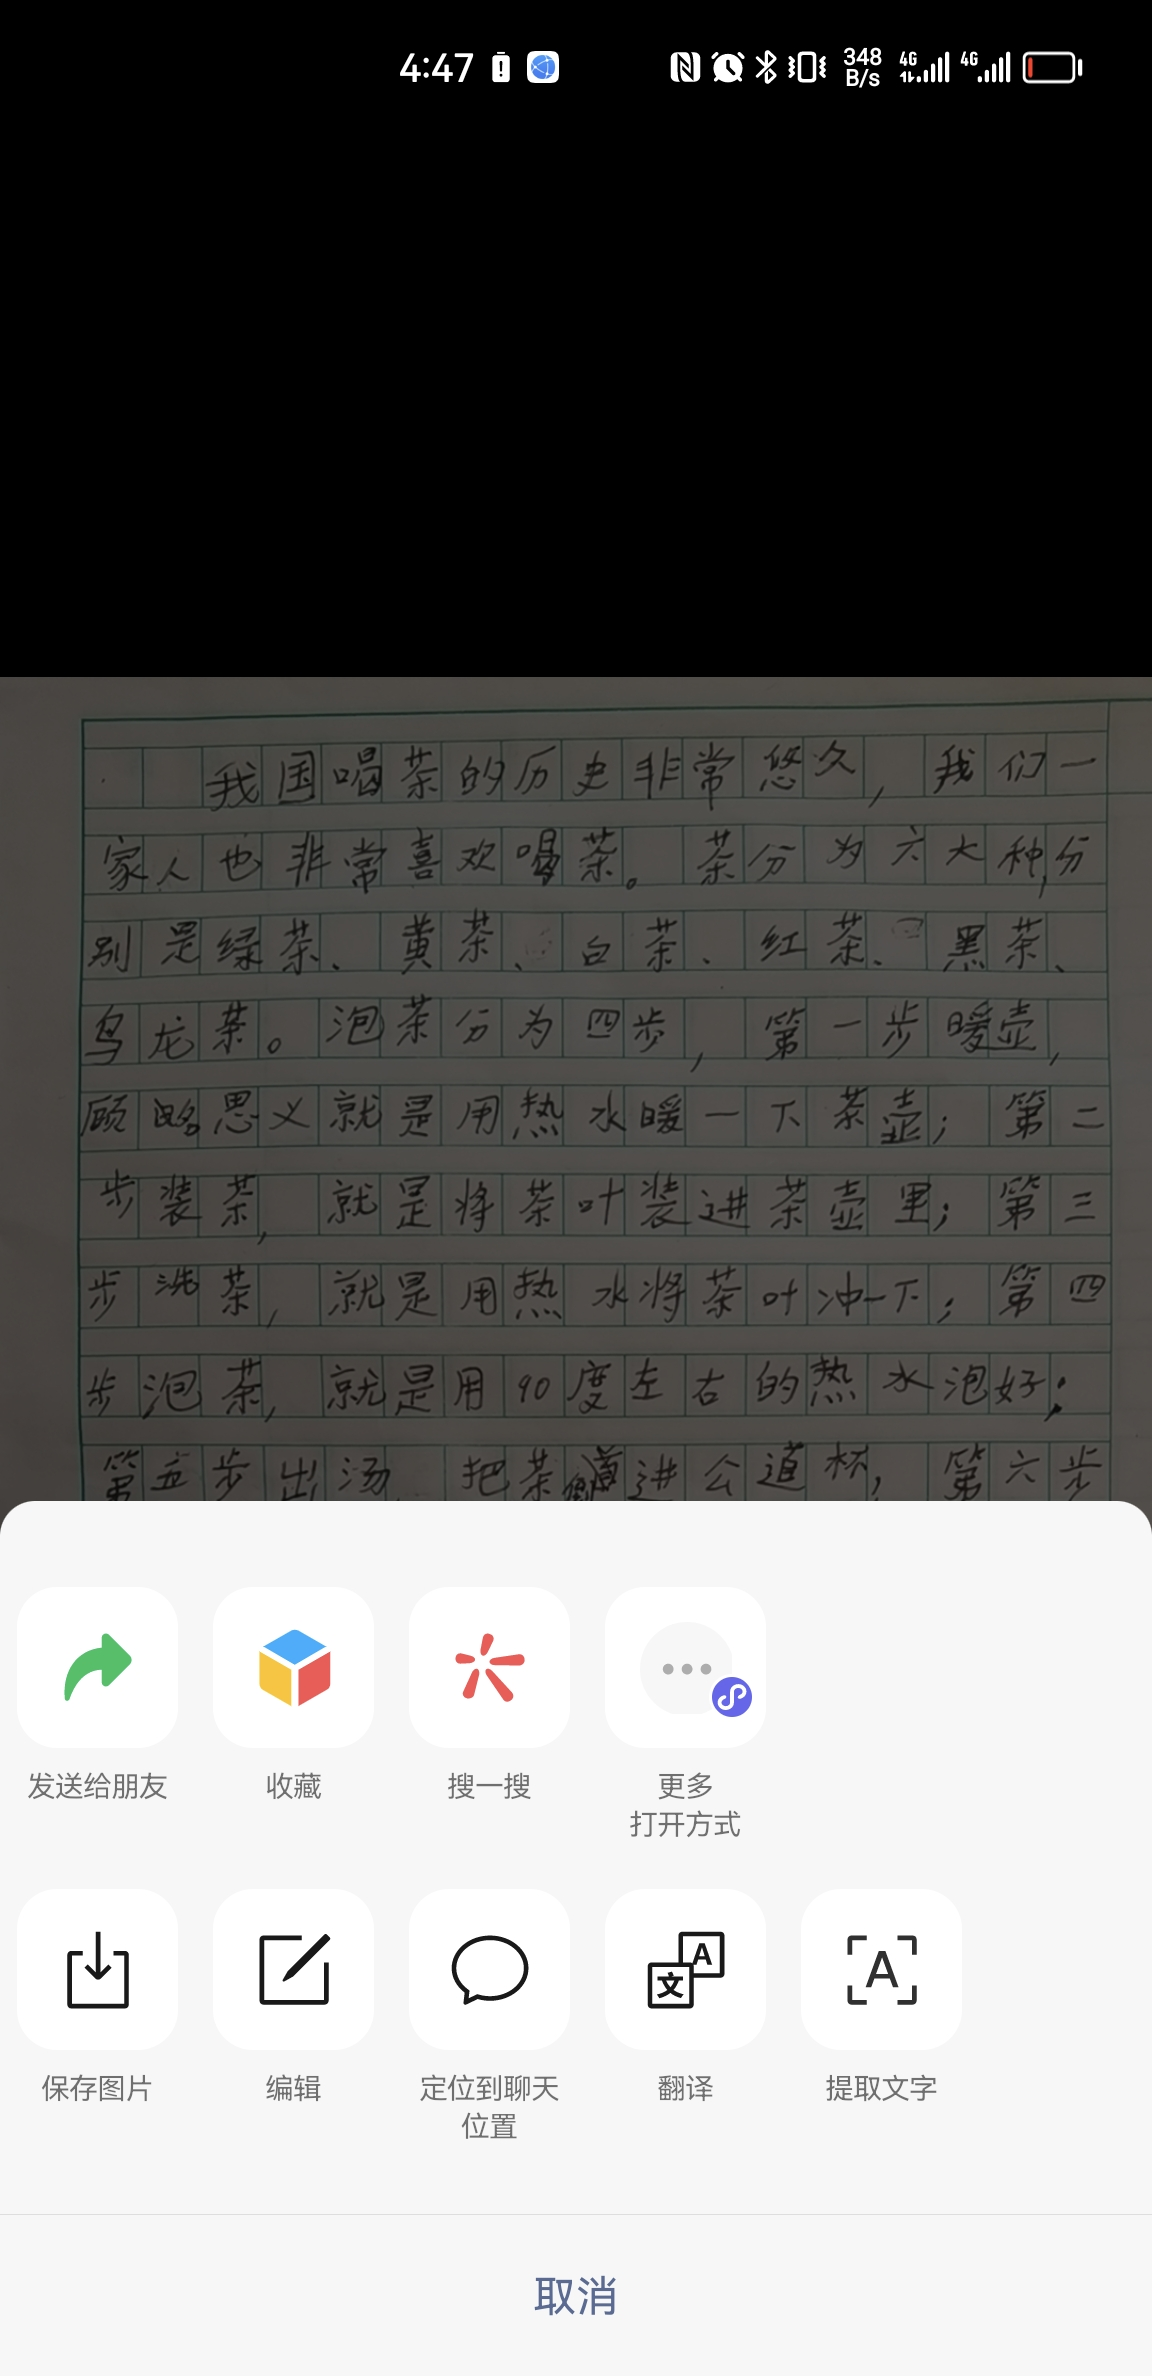 4:47
348
B/s
4G
4G
我国喝茶的历史非常悠久，我们一
家人也非常喜欢喝茶。茶分为六大种，分
别是绿茶、黄茶、白茶、红茶、黑茶、
乌龙茶。泡茶分为四步，第一步暖壶，
顾名思义就是用热水暖一下茶壶；第二
步装茶，就是将茶叶装进茶壶里；第三
步洗茶，就是用热水将茶叶冲一下；第四
步泡茶，就是用90度左右的热水泡好；
第五步出汤，把茶倒进公道杯，第六步
发送给朋友
收藏
搜一搜
更多
打开方式
保存图片
编辑
定位到聊天
位置
翻译
提取文字
取消